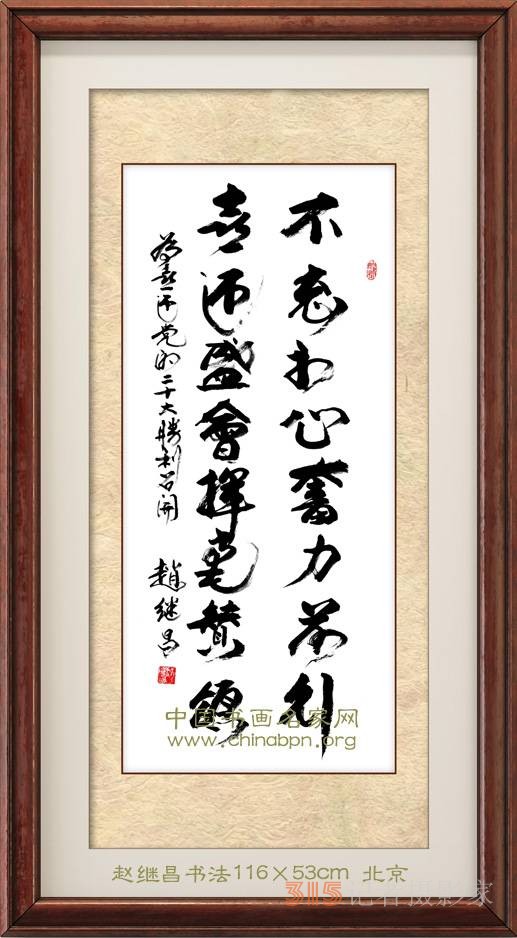 不忘初心奮力前行
喜迎盛會揮毫贊頌
为喜迎党的二十大勝利召開
趙继昌
中国书画名家网
www.chinabpn.org
赵继昌书法116×53cm 北京
315记者摄影家